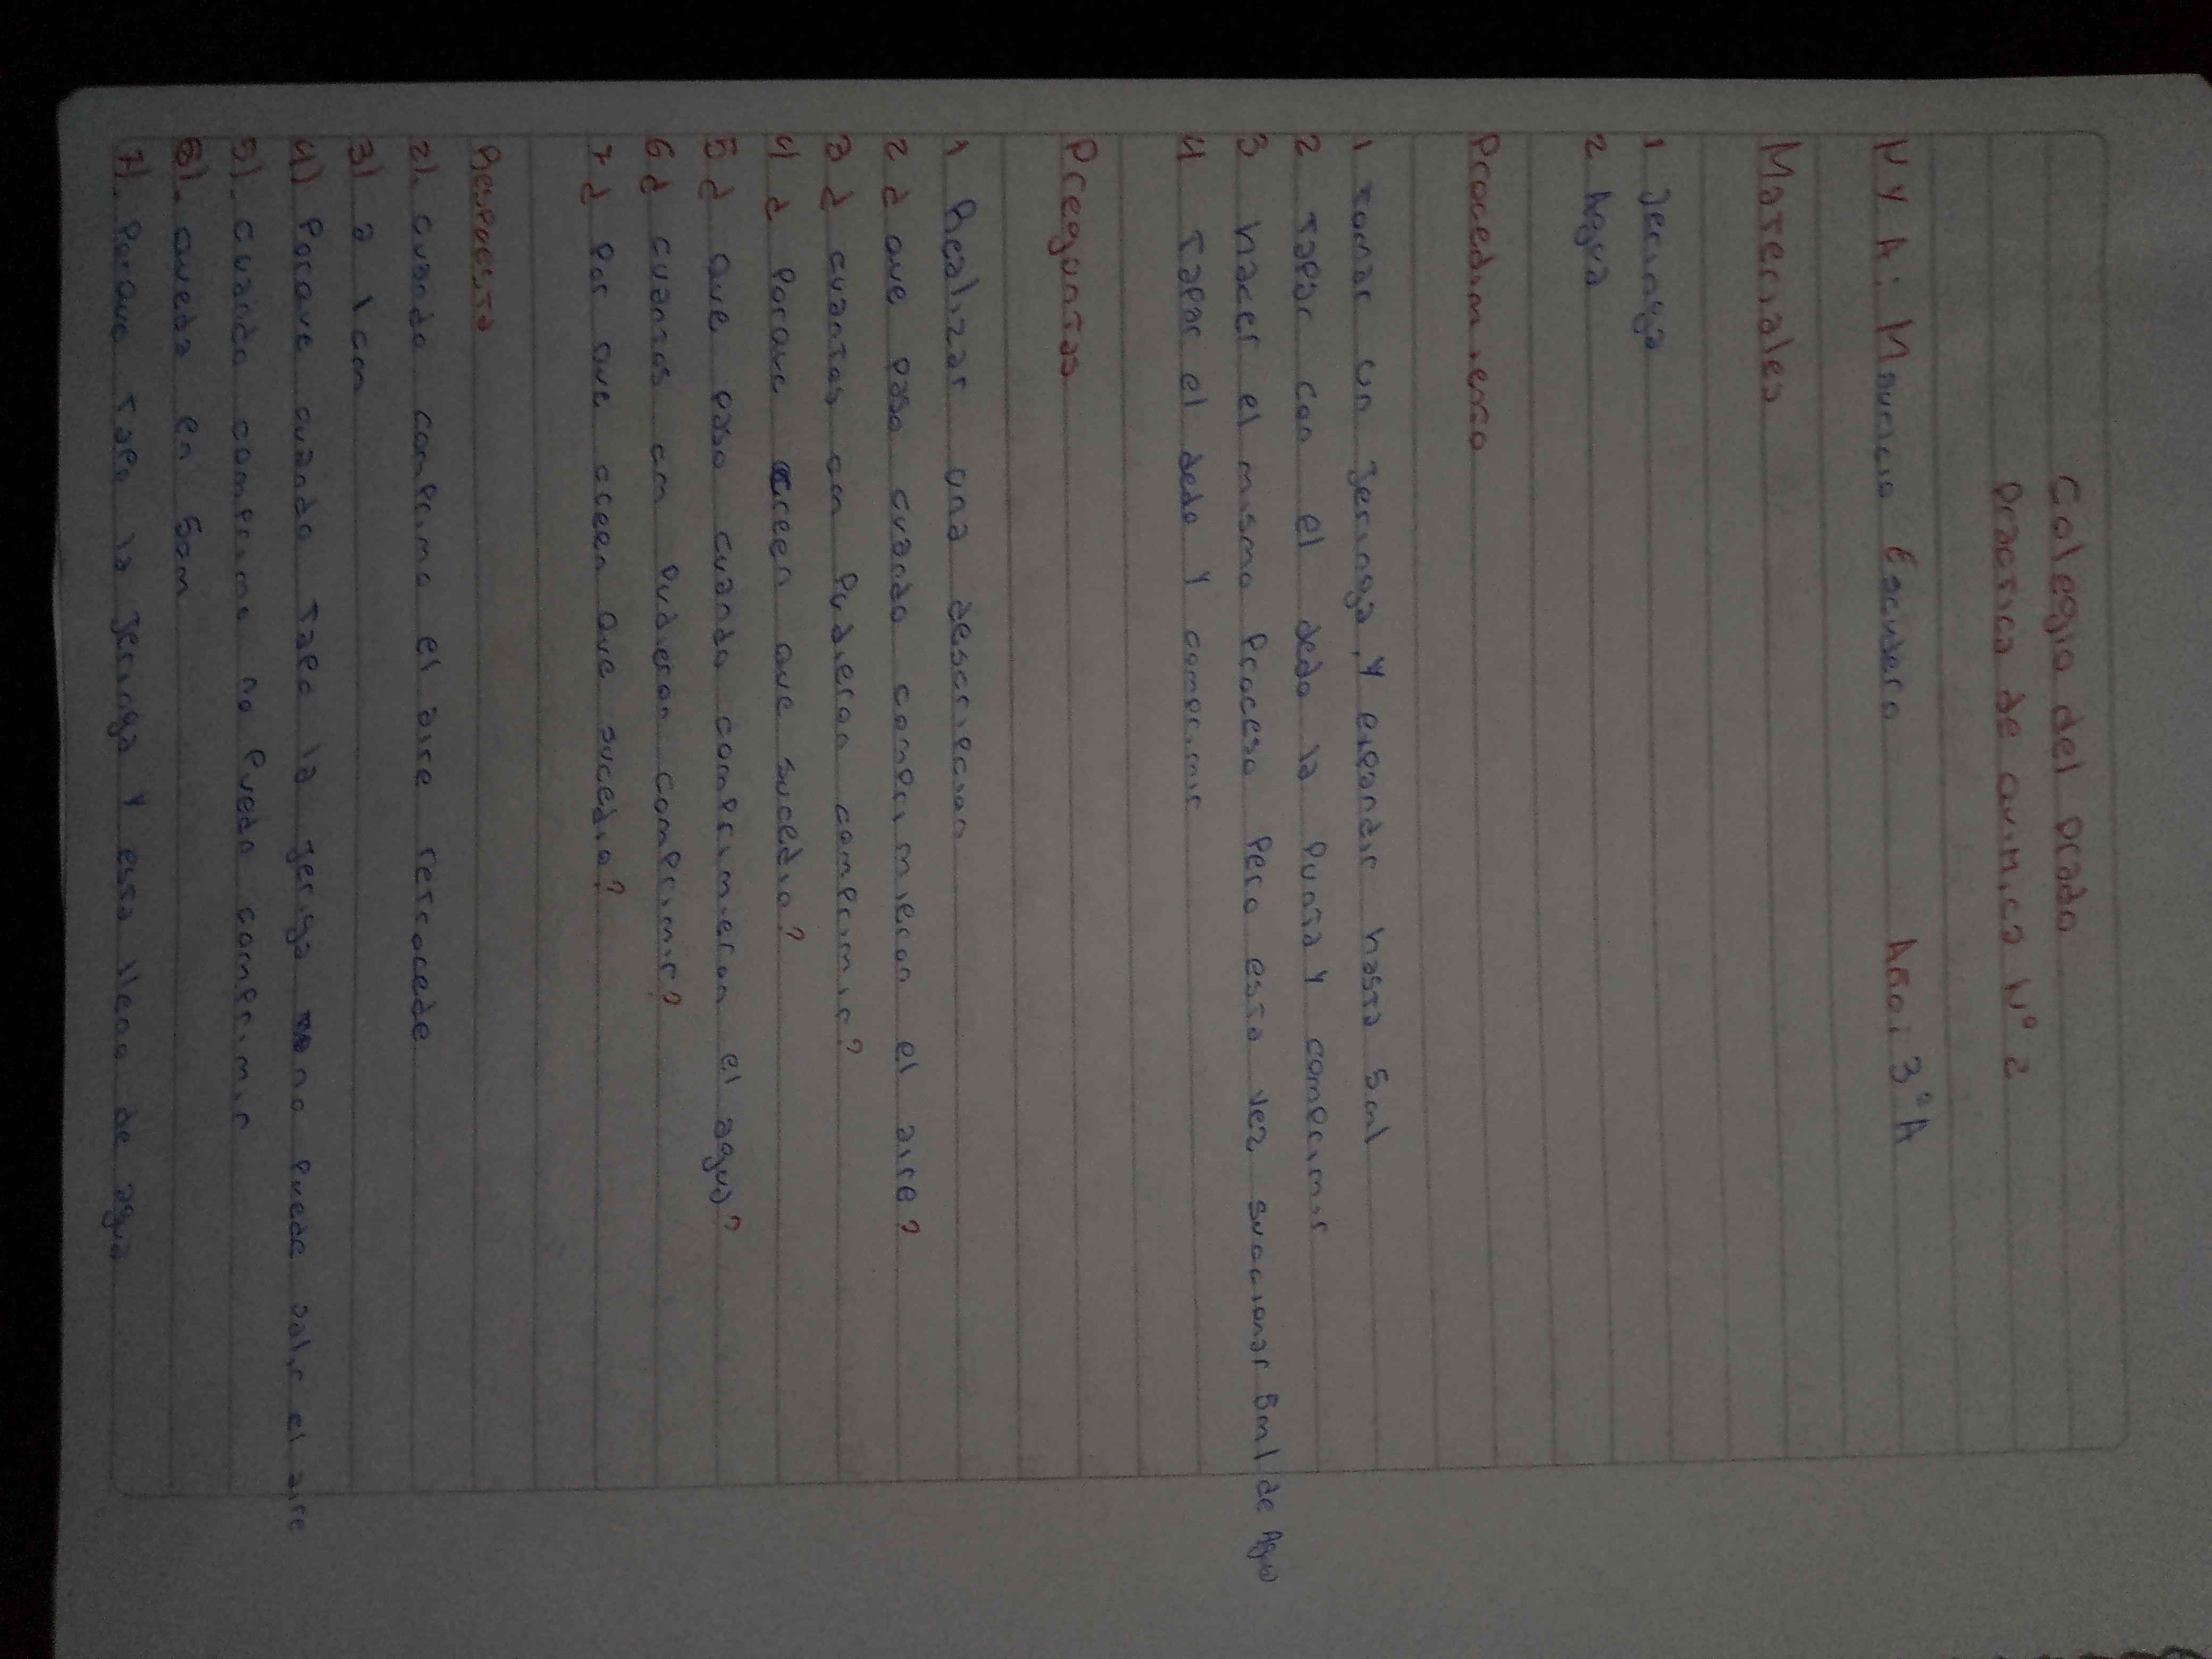 Colegio del prado
Practica de quimica N° 2
N y A: Mauricio Escudero Año: 3°A
Materiales
1 Jeringa
2 Agua
Procedimiento
1 tomar un Jeringa, y expandir hasta 5ml
2 Tapar con el dedo la Punta y comprimir
3 hacer el mismo Proceso Pero esta vez succionar 5ml de Agua
4 Tapar el dedo y comprimir
Preguntas
1 Realizar una descripcion
2 ¿ que paso cuando comprimieron el aire?
3 ¿ cuantos cm Pudieron comprimir?
4 ¿ Porque creen que sucedio?
5 ¿ que paso cuando comprimieron el agua?
6 ¿ cuantos cm Pudieron comprimir?
7 ¿ Por que creen que sucedio?
Respuesta
2). cuando comprimo el aire retrocede
3) a 1 cm
4) Porque cuando Tapo la jeriga no puede salir el aire
5). cuando comprimo no Puedo comprimir
6). queda en 5cm
7). Porque Tapo la Jeringa y esta llena de agua